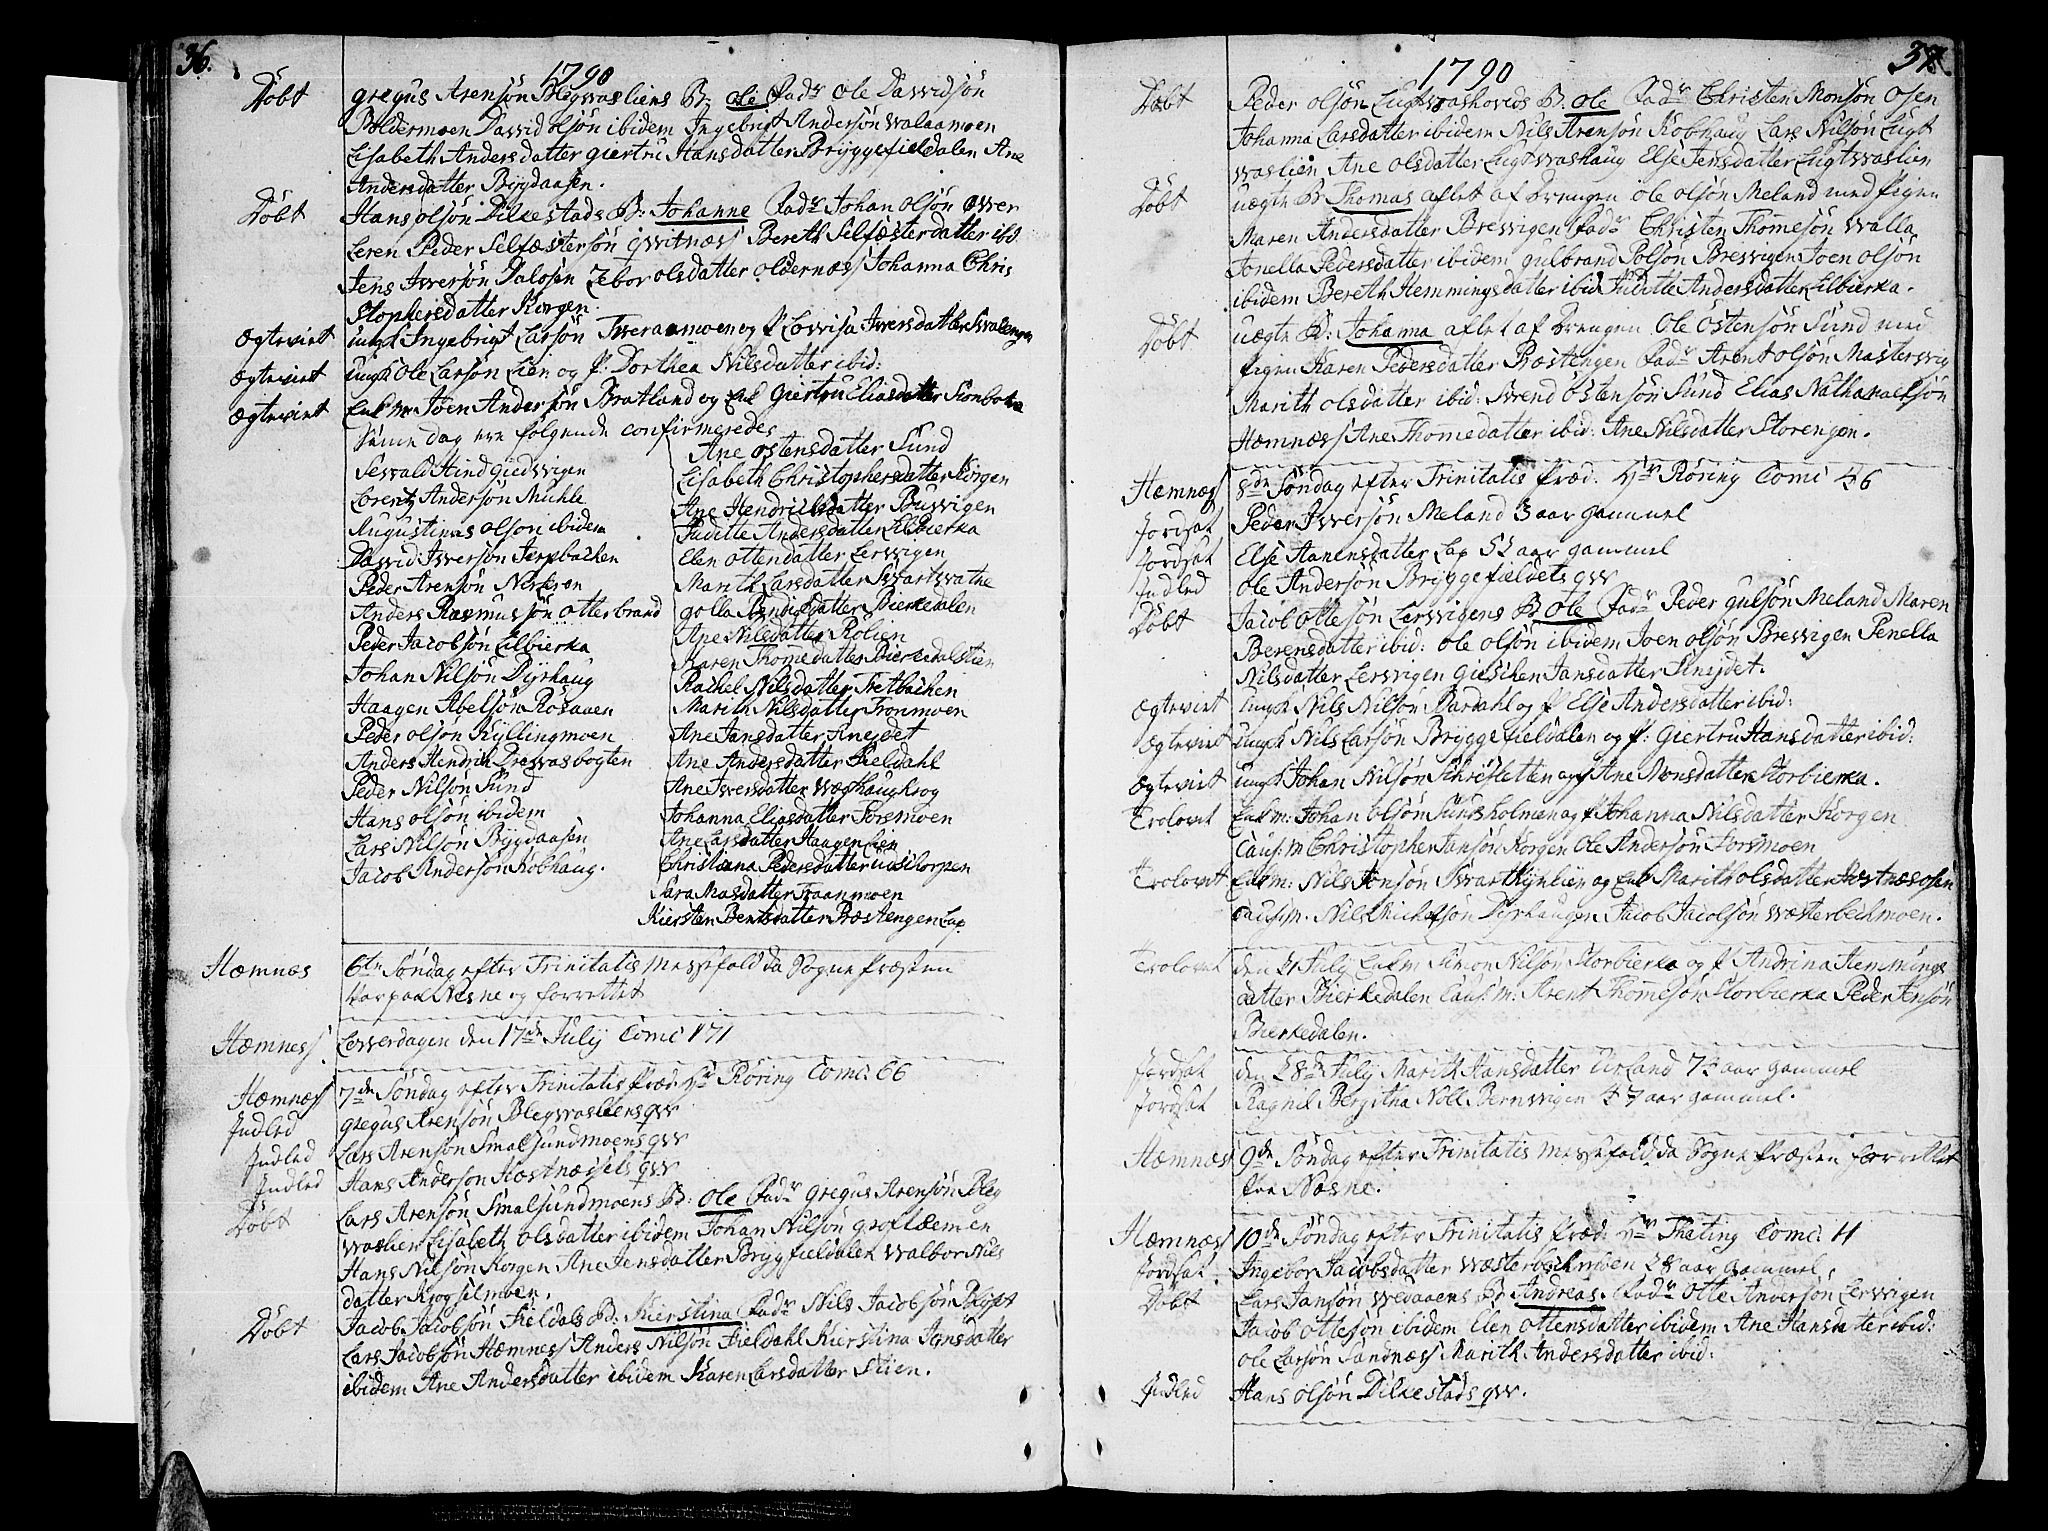 36.
1790
Döbt gregus Arensön Blegvasliens B: Ole Fadr Ole Davidsön
Boldermoen David olsön ibidem Ingebrigt Andersön Walaamoen
Lisabeth Andersdatter giertru Hansdatter Bryggefieldalen Ane
Andersdatter Bygdaasen.
Döbt Hans olsön Dilkestads B: Johanne Fadr Johan olsön over
Leren Peder Selfæstersön qvitnæss Bereth Selfæsterdatter ibd
Jens Iversön Dalosen Zebor olsdatter oldernæss Johanna Chris
stophersdatter Korgen.
Ægteviet ungk Ingebrigt Larsön Tveraamoen og P Lovisa Iversdatter
Ægteviet ungk Ole Larsön Lien og P. Dorthea Nilsdatter ibid:
Ægteviet Enk m Joen Andersön Bratland og Enk Giertru Eliasdatter
Samme dag ere folgende confirmeredes
Sesvald Hind giedsvigen
Lorentz Andersön Mühle
Augustinus olsön ibidem
David Iversön Jerpbachen
Peder Arensön Nerleren
Anders Rasmussön otterbrand
Peder Jacobsön Lilbierka
Johan Nilsön Dyrhaug
Haagen Abelsön Rösaaen
Peder olsön Kyllingmoen
Anders Hendrik Dresvasbogten
Peder Nilsön Sund
Hans olsön ibidem
Lars Nilsön Bygdaasen
Jacob Andersön Kobhaug.
Ane ostensdatter Sund
Lisabeth Christophersdatter Korgen
Ane Hendrichsdatter Busvigen
Juditte Andersdatter Lilbierka
Elen ottendatter Lervigen
Marith Larsdatter Svartvatne
golla Bendixdatter Bierkedalen
Ane Nilsdatter Rölien
Karen Thomedatter Bierkedalslien
Rachel Nilsdatter Tretbachen
Marith Nilsdatter Tronmoen
Ane Jansdatter Aneydet
Ane Andersdatter Fieldahl
Ane Iversdatter Væshaugkrog
Johanna Eliasdatter Forsmoen
Ane Larsdatter Haagenlien
Christiana Pedersdatter
Sara Masdatter Traanmoen
Kiersten Bentsdatter Præstengen Lap.
Hæmnes 6te Söndag efter Trinitatis Messefald da Sogne Præsten
var paa Næsne og forrettet
Hæmness Löverdagen den 17de July Comc 171
Hæmness 7de Söndag efter Trinitatis Præd: Hr Röring Comc: 66
Indled gregus Arensön Blegvasliens qvr
Indled Lars Arensön Smalsundmoens qvr
Indled Hans Andersön Hæstnæssets qvr
Döbt Lars Arensön Smalsundmoens B: Ole Fadr gregus Arensön Bleg
vaslien Lisabeth olsdatter ibidem Johan Nilsön groftremen
Hans Nilsön Korgen Ane Jensdatter Brygfieldalen Walbor Nils
datter Krogselmoen.
Döbt Jacob Jacobsön Fieldals B: Kierstina Fadr Nils Jacobsön Ryst
Lars Jacobsön Hæmness Anders Nilsön Fieldahl Kierstina Jensdatter
ibidem Ane Andersdatter ibidem Karen Larsdatter Stien.
37.
1790
Döbt Peder olsön Lugtvashoveds B: Ole Fadr Christen Monsön Osen
Johanna Larsdatter ibidem Nils Arensön Kobhaug Lars Nilsön Lugt
vaslien Ane olsdatter Lugtvashaug Else Jensdatter Lugtvaslien
Döbt uægte B Thomas aflet af drengen Ole olsön Meland med Pigen
Maren Andersdatter Bresvigen Fadr Christen Thomesön Walla
Jonella Pedersdatter ibidem gulbrand Polsön Bresvigen Joen olsön
ibidem Bereth Hemmingsdatter ibid Juditte Andersdatter Lilbierka.
Döbt uægte B: Johanna aflet af drengen Ole Ostensön Sund med
Pigen Karen Pedersdatter Præstengen Fadr Arent olsön Mastervig
Marith olsdatter ibid: Svend Ostensön Sund Elias Nathanaelsön
Hæmness Ane Thomedatter ibid: Ane Nilsdatter Storengen.
Hæmness 8de Söndag efter Trinitatis Præd: Hr Röring Comc 46
Jordsat Peder Iversön Meland 3 aar gammel
Jordsat Else Aanensdatter Lap 52 aar gammel
Indled Ole Andersön Bryggefieldets qvr
Döbt Jacob Ottesön Lervigens B Ole Fadr Peder gulsön Meland Maren
Berensdatter ibid: ole olsön ibidem Joen olsön Bresvigen Penella
Nilsdatter Lervigen gieschen Jansdatter Aneydet.
Ægteviet ungk Nils Nilsön Bardahl og P Else Andersdatter ibid:
Ægteviet ungk Nils Larsön Bryggefieldalen og P: Giertru Hansdatter ibid:
Ægteviet ungk Johan Nilsön Skresletten og P Ane Monsdatter Storbierka.
Trolovet Enkm: Johan olsön Sundsholmen og P Johanna Nilsdatter Korgen
Caus: m Christopher Jansön Korgen Ole Andersön Forsmoen
Trolovet Enkm: Nils Jonsön Svartkynlien og Enk Marith olsdatter Hestnæsosen
Caus: m: Nils Michelsön Dyrhaugen Jacob Jacobsön Wæsterbechmoen.
Trolovet den 21 July Enkm Simon Nilsön Storbierka og P Andrina Hemmings
datter Bierkedalen Caus: m: Arent Thomesön Storbierka Peder Jensön
Bierkedalen.
Jordsat den 28de July Marith Hansdatter Urland 72 aar gammel
Jordsat Ragnil Bergitha Noll Bernsvigen 47 aar gammel.
Hæmness 9de Söndag efter Trinitatis Messefald da Sogne Præsten forrettet
paa Næsne.
Hæmness 10de Söndag efter Trinitatis Præd: Hr Theting Comc: 11
Jordsat Ingebor Jacobsdatter Wæsterbechmoen 28 aar gammel.
Döbt Lars Jansön Wedaaens B Andreas Fadr Otte Andersön Lervigen
Jacob Ottesön ibidem Elen Ottensdatter ibidem Ane Hansdatter ibid:
ole Larsön Sandnæss Marith Andersdatter ibid:
Indled Hans olsön Dilkestads qvr.